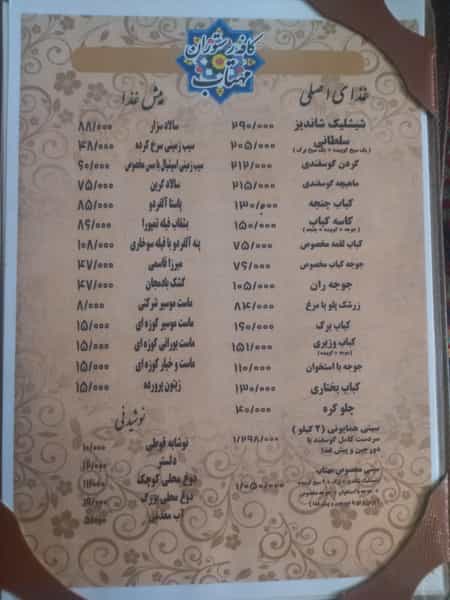 کافه رستوران
مهتاب
غذای اصلی
شیشلیک شاندیز ۲۹۰/۰۰۰
سلطانی ۲۰۵/۰۰۰
( یک سیخ کوبیده + یک سیخ برگ )
گردن گوسفندی ۲۱۲/۰۰۰
ماهیچه گوسفندی ۲۱۵/۰۰۰
کباب چنجه ۱۳۰/۰۰۰
کاسه کباب ۱۵۰/۰۰۰
( جوجه + کوبیده + چنجه )
کباب لقمه مخصوص ۷۵/۰۰۰
جوجه کباب مخصوص ۷۶/۰۰۰
جوجه ران ۱۰۵/۰۰۰
زرشک پلو با مرغ ۸۴/۰۰۰
کباب برگ ۱۶۰/۰۰۰
کباب وزیری ۱۵۱/۰۰۰
( جوجه + کوبیده )
جوجه با استخوان ۱۱۰/۰۰۰
کباب بختیاری ۱۳۰/۰۰۰
چلو کره ۴۰/۰۰۰
سینی همایونی ( ۲ کیلو ) ۱/۲۹۸/۰۰۰
سردست کامل گوسفند با
دورچین و پیش غذا
سینی مخصوص مهتاب ۱/۰۵۰/۰۰۰
پیش غذا
سالاد سزار ۸۸/۰۰۰
سیب زمینی سرخ کرده ۴۸/۰۰۰
سیب زمینی اسپشیال با سس مخصوص ۶۰/۰۰۰
سالاد گرین ۷۵/۰۰۰
پاستا آلفردو ۸۵/۰۰۰
بشقاب فیله تمپورا ۸۶/۰۰۰
پنه آلفردو با فیله سوخاری ۱۰۸/۰۰۰
میرزا قاسمی ۴۷/۰۰۰
کشک بادمجان ۴۷/۰۰۰
ماست موسیر شرکتی ۸/۰۰۰
ماست موسیر کوزه ای ۱۵/۰۰۰
ماست بورانی کوزه ای ۱۵/۰۰۰
ماست و خیار کوزه ای ۱۵/۰۰۰
زیتون پرورده ۱۵/۰۰۰
نوشیدنی
نوشابه قوطی ۱۰/۰۰۰
دلستر ۱۲/۰۰۰
دوغ محلی کوچک
دوغ محلی بزرگ
آب معدنی ۵/۰۰۰